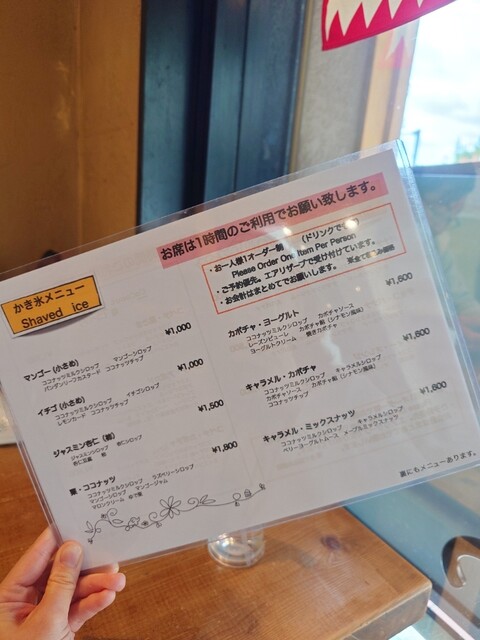 お席は1時間のご利用でお願い致します。
・お一人様1オーダー制 (ドリンクで
Please Order One Item Per Person
・ご予約優先。エアリザーブで受け付けています。
・お会計はまとめてでお願いします。
かき氷メニュー
Shaved ice
¥1,000
マンゴー(小さめ)
ココナッツミルクシロップ マンゴーシロップ
パンダンリーフカスタード ココナッツチップ
¥1,000
イチゴ(小さめ)
ココナッツミルクシロップ イチゴシロップ
レモンカード ココナッツチップ
¥1,500
ジャスミン杏仁(桃)
ジャスミンシロップ 杏仁シロップ
杏仁豆腐 桃
¥1,800
栗・ココナッツ
ココナッツミルクシロップ ラズベリーシロップ
マンゴーシロップ マンゴージャム
マロンクリーム ゆで栗
¥1,600
カボチャ・ヨーグルト
ココナッツミルクシロップ カボチャソース
レーズンピューレ カボチャ餡(シナモン風味)
ヨーグルトクリーム 焼きカボチャ
¥1,600
キャラメル・カボチャ
ココナッツミルクシロップ キャラメルシロップ
カボチャソース カボチャ餡(シナモン風味)
ココナッツチップ
¥1,600
キャラメル・ミックスナッツ
ココナッツミルクシロップ キャラメルシロップ
ベリーヨーグルトムース メープルミックスナッツ
裏にもメニューあります。